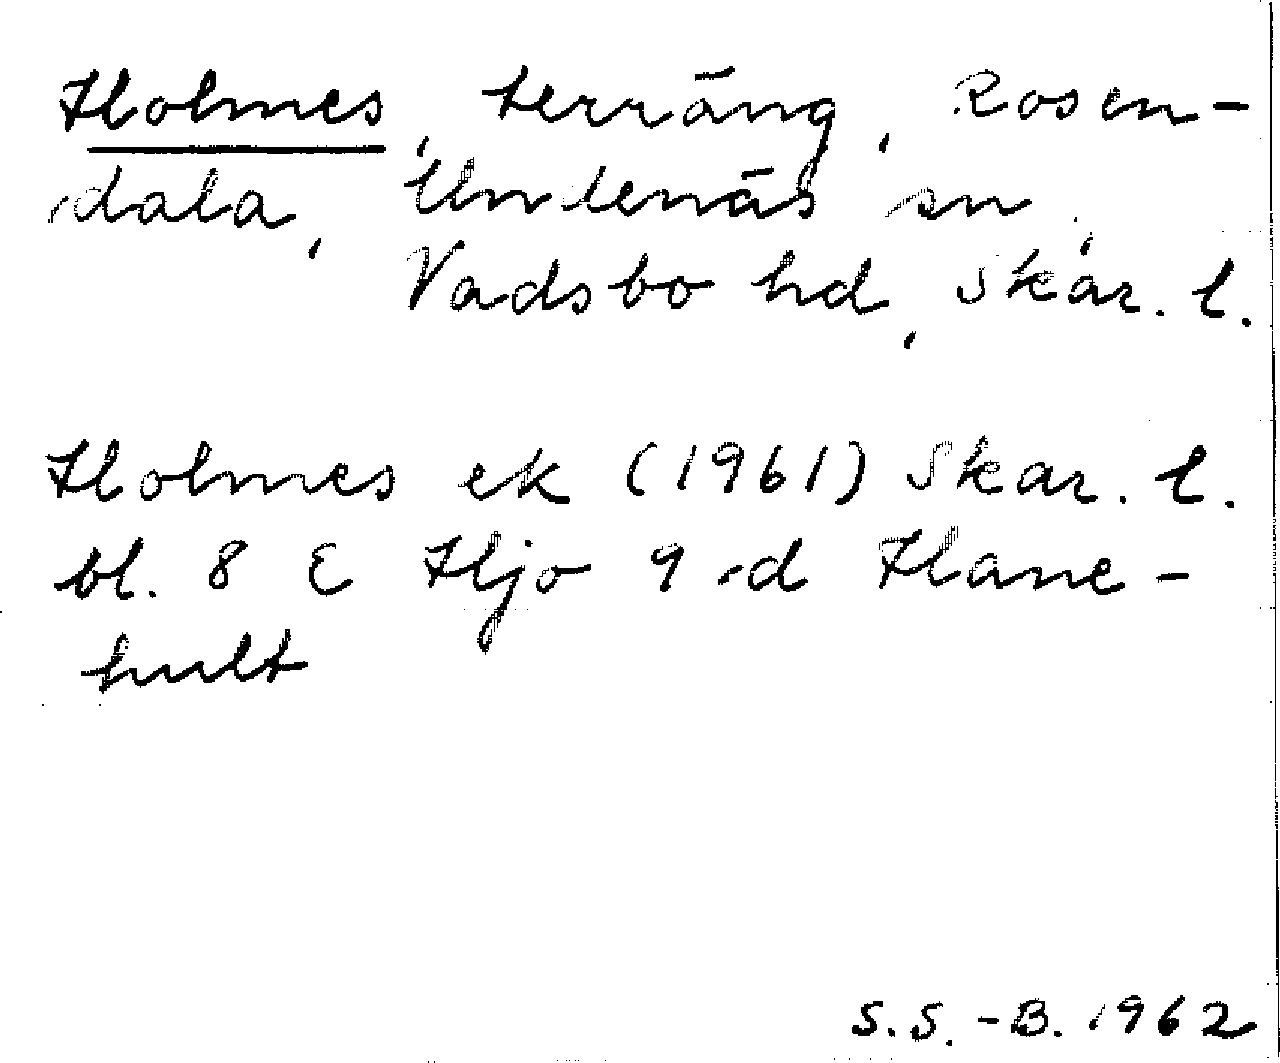 Holmes, terräng, Rosen-
dala, Undenäs sn,
Vadsbo hd, Skar. l.
Holmes ek (1961) Skar. l.
bl. 8 E Hjo 9 d Hane-
hult
S.S.-B. 1962